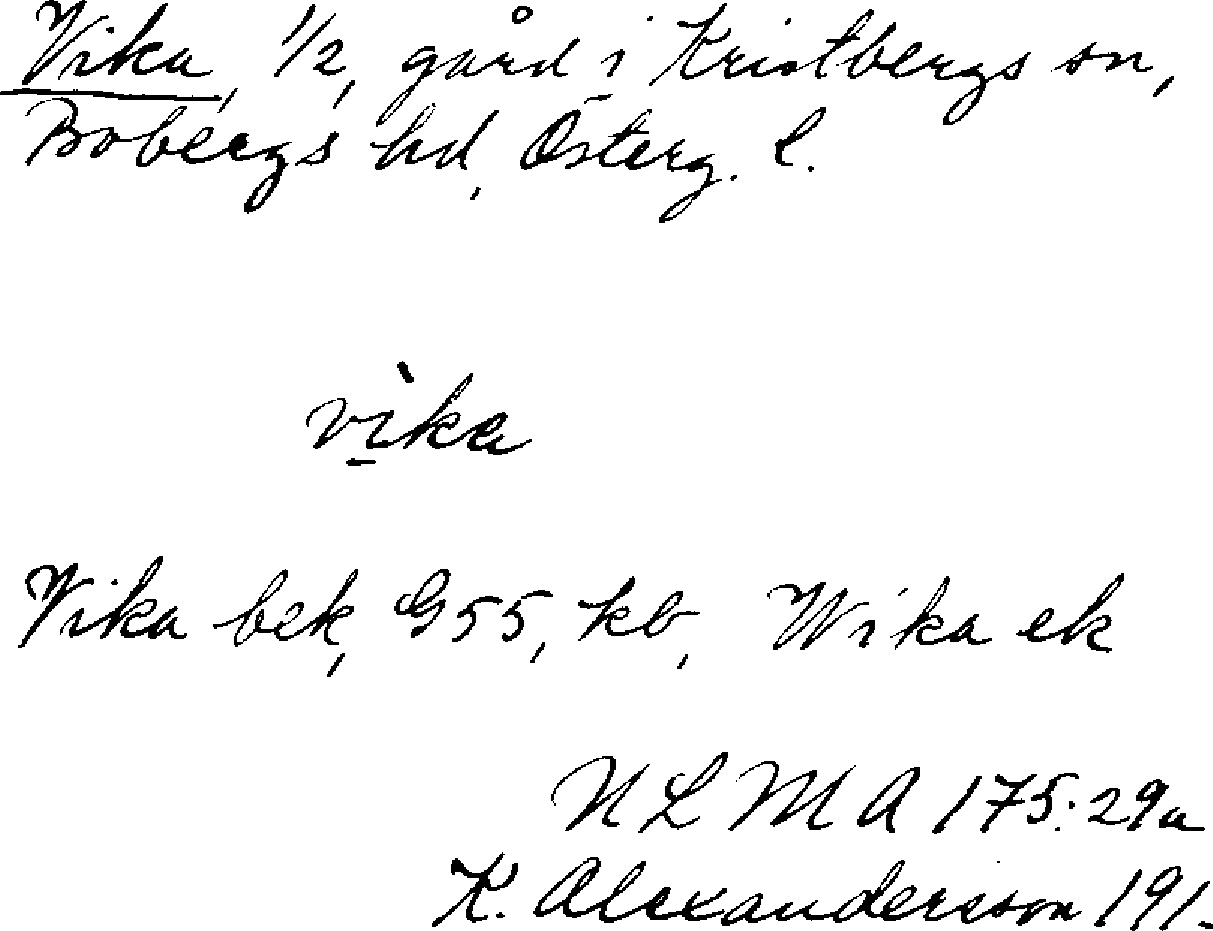 Vika, 1/2, gård i Kristbergs sn,
Bobergs hd, Österg. l.
vì̠ka
Vika bek, G55, kb, Wika ek
NLMA 175:29a
K. Alexandersson 191.